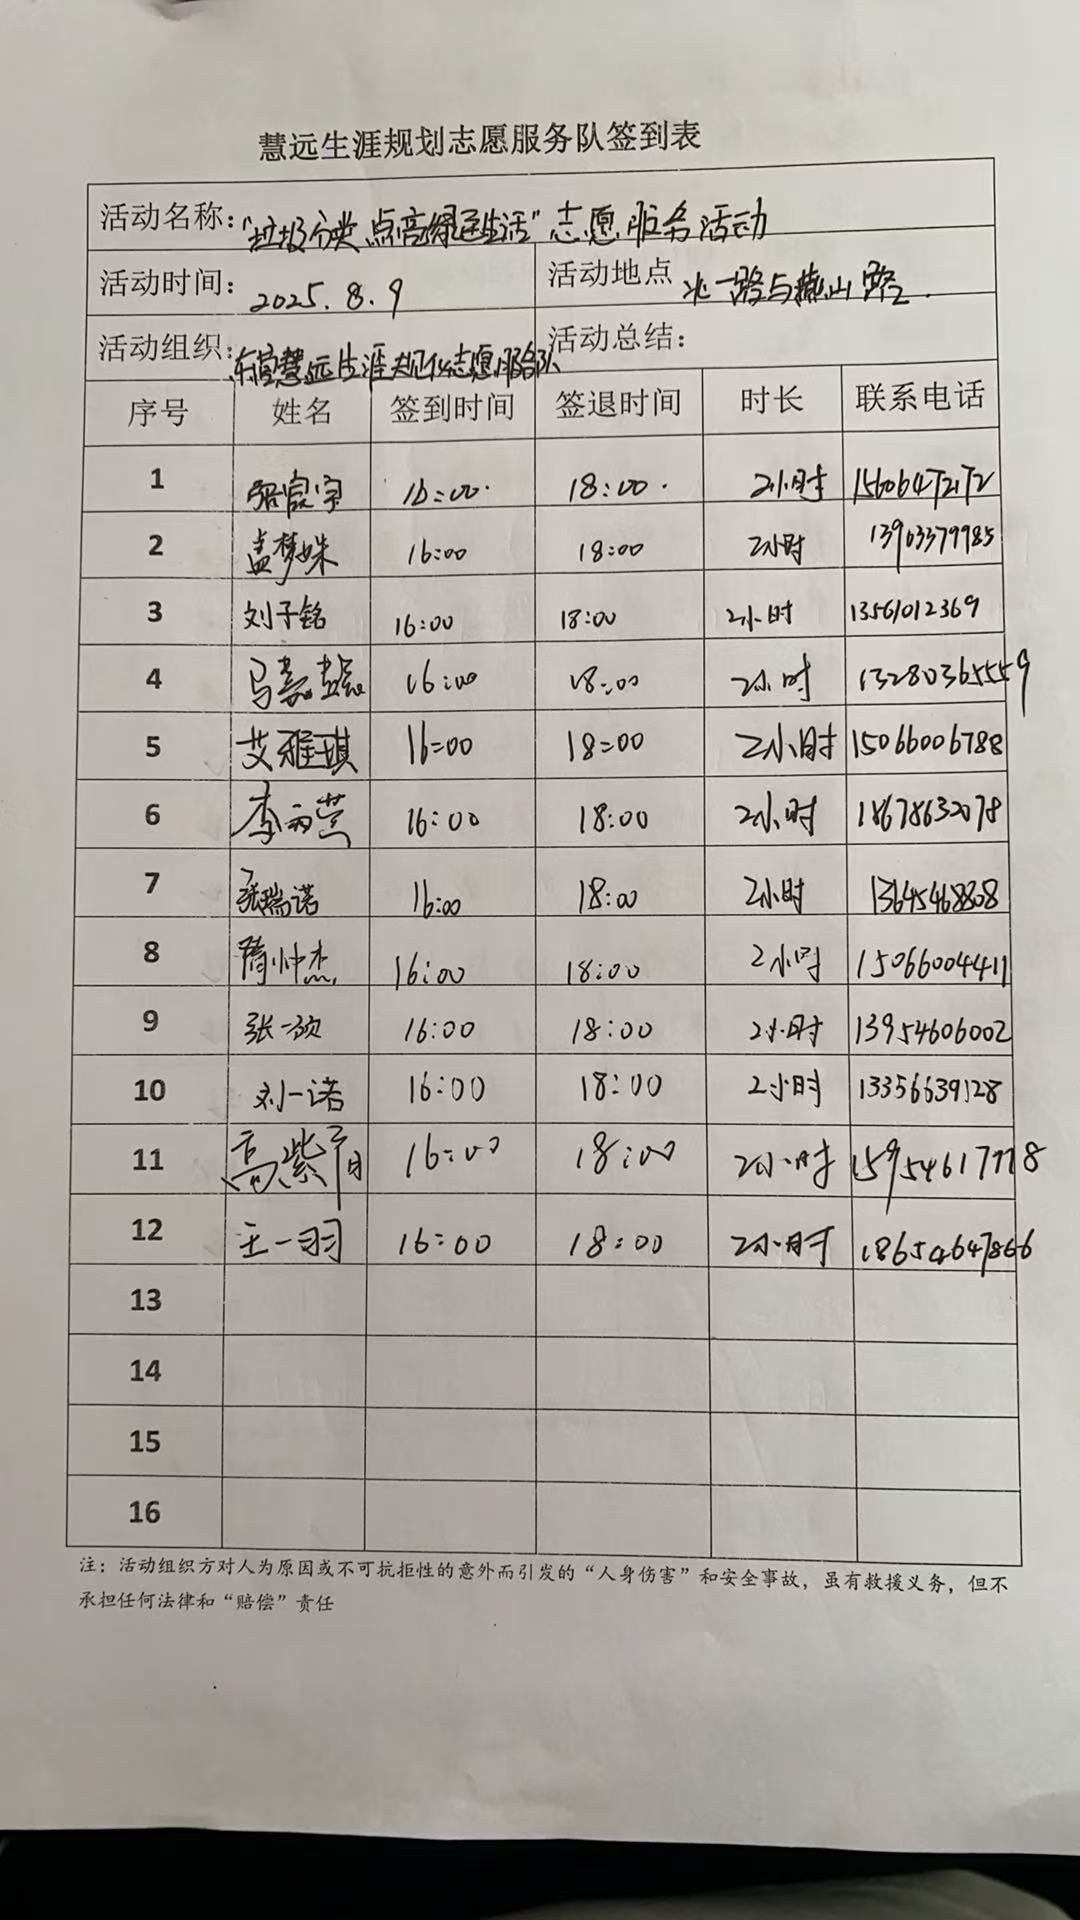 慧远生涯规划志愿服务队签到表
活动名称：“垃圾分类 点亮绿色生活”志愿服务活动
活动时间：2025.8.9 活动地点 北一路与燕山路.
活动组织：东营慧远生涯规划志愿服务队 活动总结：
序号 姓名 签到时间 签退时间 时长 联系电话
1 16:00. 18:00. 2小时 15606472172
2 孟梦姝 16:00 18:00 2小时 13903379985
3 刘子铭 16:00 18:00 2小时 13561012369
4 16:00 18:00 2小时 13280365559
5 艾雅琪 16=00 18=00 2小时 15066006788
6 16:00 18:00 2小时 18678632078
7 张瑞诺 16:00 18:00 2小时 13645468808
8 隋帅杰 16:00 18:00 2小时 15066004411
9 16:00 18:00 2小时 13954606002
10 刘一诺 16:00 18:00 2小时 13356639128
11 16:00 18:00 2小时
12 王一羽 16:00 18:00 2小时 18654647866
13
14
15
16
注：活动组织方对人为原因或不可抗拒性的意外而引发的“人身伤害”和安全事故，虽有救援义务，但不
承担任何法律和“赔偿”责任